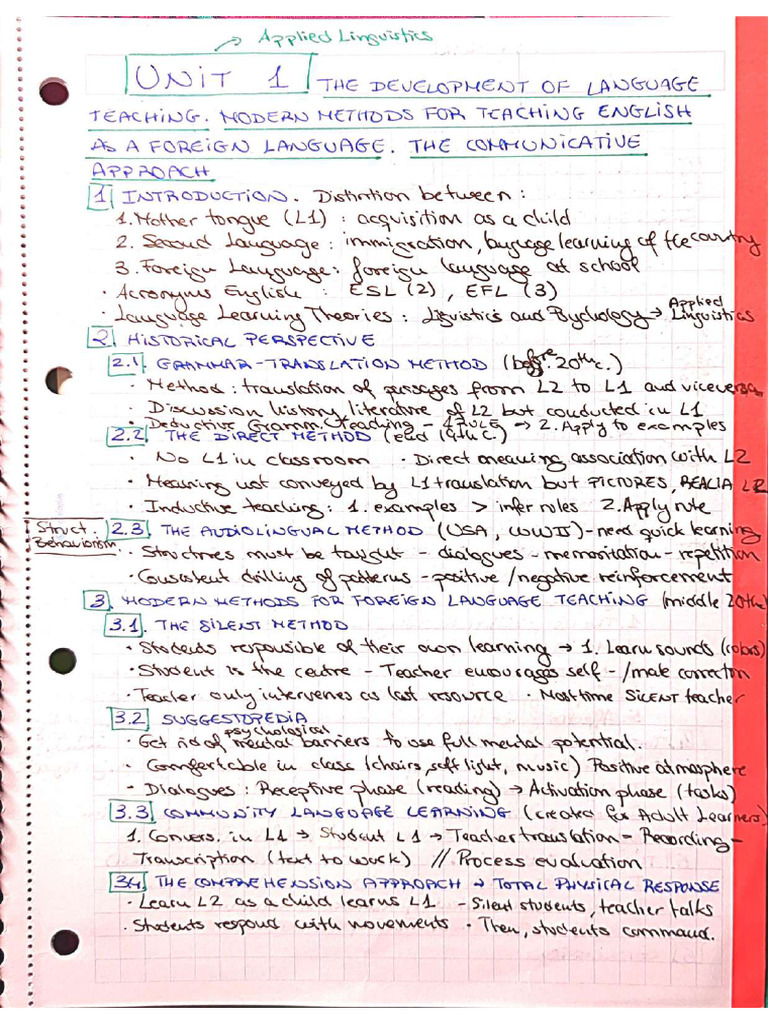 → Applied Linguistics
UNIT 1 THE DEVELOPMENT OF LANGUAGE
TEACHING. MODERN METHODS FOR TEACHING ENGLISH
AS A FOREIGN LANGUAGE. THE COMMUNICATIVE
APPROACH
1 INTRODUCTION. Distintion between:
1. Mother tongue (L1) : acquisition as a child
2. Second Language : immigration, language learning of the country
3. Foreign Language: foreign language at school
· Acronyms English : ESL (2), EFL (3)
· Language Learning Theories : Liguistics and Psychology → Applied Linguistics
2. HISTORICAL PERSPECTIVE
2.1. GRAMMAR-TRANSLATION METHOD (before 20th c.)
· Method : translation of passages from L2 to L1 and viceversa
· Discussion history literature of L2 but conducted in L1
· Deductive Gramm. teaching - 1 RULE → 2. Apply to examples
2.2. THE DIRECT METHOD (end 19th c.)
· No L1 in classroom · Direct meaning association with L2
· Meaning not conveyed by L1 translation but PICTURES, REALIA L2
· Inductive teaching: 1. examples > infer rules 2. Apply rule
Struct. Behaviorism. 2.3 THE AUDIOLINGUAL METHOD (USA, WWII) - need quick learning
· Structures must be taught - dialogues - memoritation - repetition
· Consistent drilling of patterns - positive / negative reinforcement
3. MODERN METHODS FOR FOREIGN LANGUAGE TEACHING (middle 20th)
3.1. THE SILENT METHOD
· Students responsible of their own learning → 1. Learn sounds (colors)
· Student is the centre - Teacher encourages self - /mate correction
· Teacher only intervenes as last resource · Most time SILENT teacher
3.2 SUGGESTOPEDIA
· Get rid of mental psychological barriers to use full mental potential.
· Comfortable in class (chairs, soft light, music) Positive atmosphere
- Dialogues : Receptive phase (reading) → Activation phase (tasks)
3.3 COMMUNITY LANGUAGE LEARNING (created for Adult Learners)
1. Convers. in L1 → Student L1 → Teacher translation - Recording -
Transcription (text to work) // Process evaluation
3.4 THE COMPREHENSION APPROACH → TOTAL PHYSICAL RESPONSE
· Learn L2 as a child learns L1 - Silent students, teacher talks
· Students respond with movements · Then, students command.